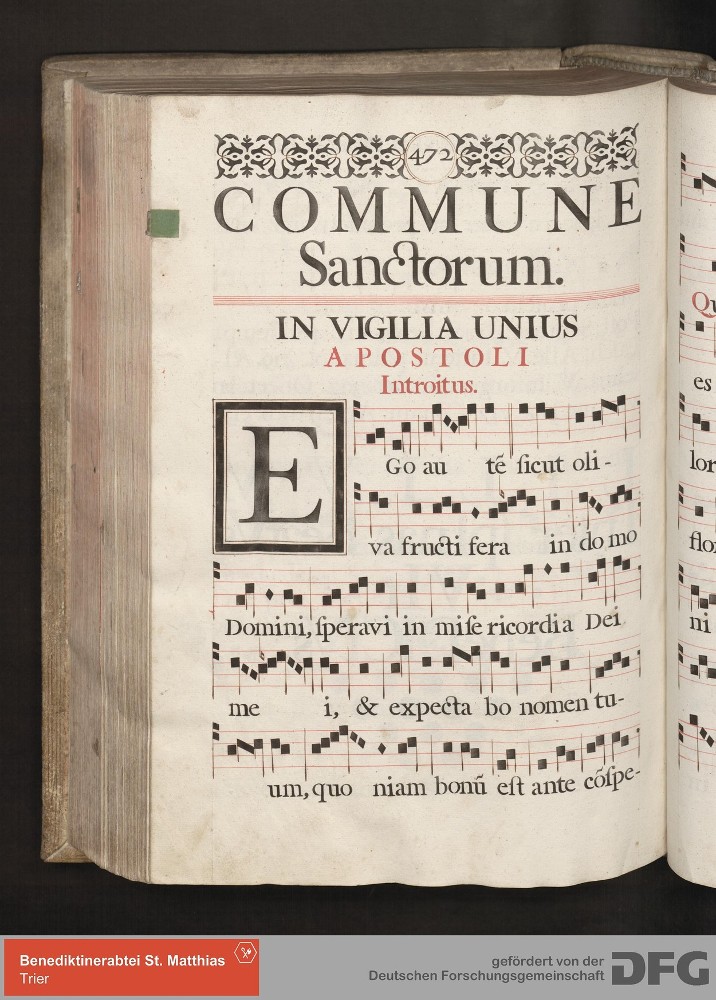 472
COMMUNE
Sanctorum.
IN VIGILIA UNIUS
APOSTOLI
Introitus.
EGo au tẽ ſicut oli-
va fructi fera in do mo
Domini, ſperavi in miſe ricordia Dei
me i, & expecta bo nomen tu-
um, quo niam bonũ eſt ante cõſpe-
Qu
es
lor
flor
ni
Benediktinerabtei St. Matthias
Trier
gefördert von der
Deutschen Forschungsgemeinschaft
DFG